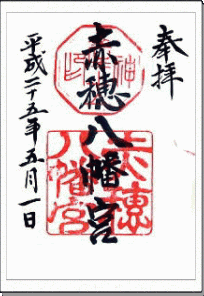 奉拝
赤穂八幡宮
平成二十五年五月一日
赤穂
八幡宮